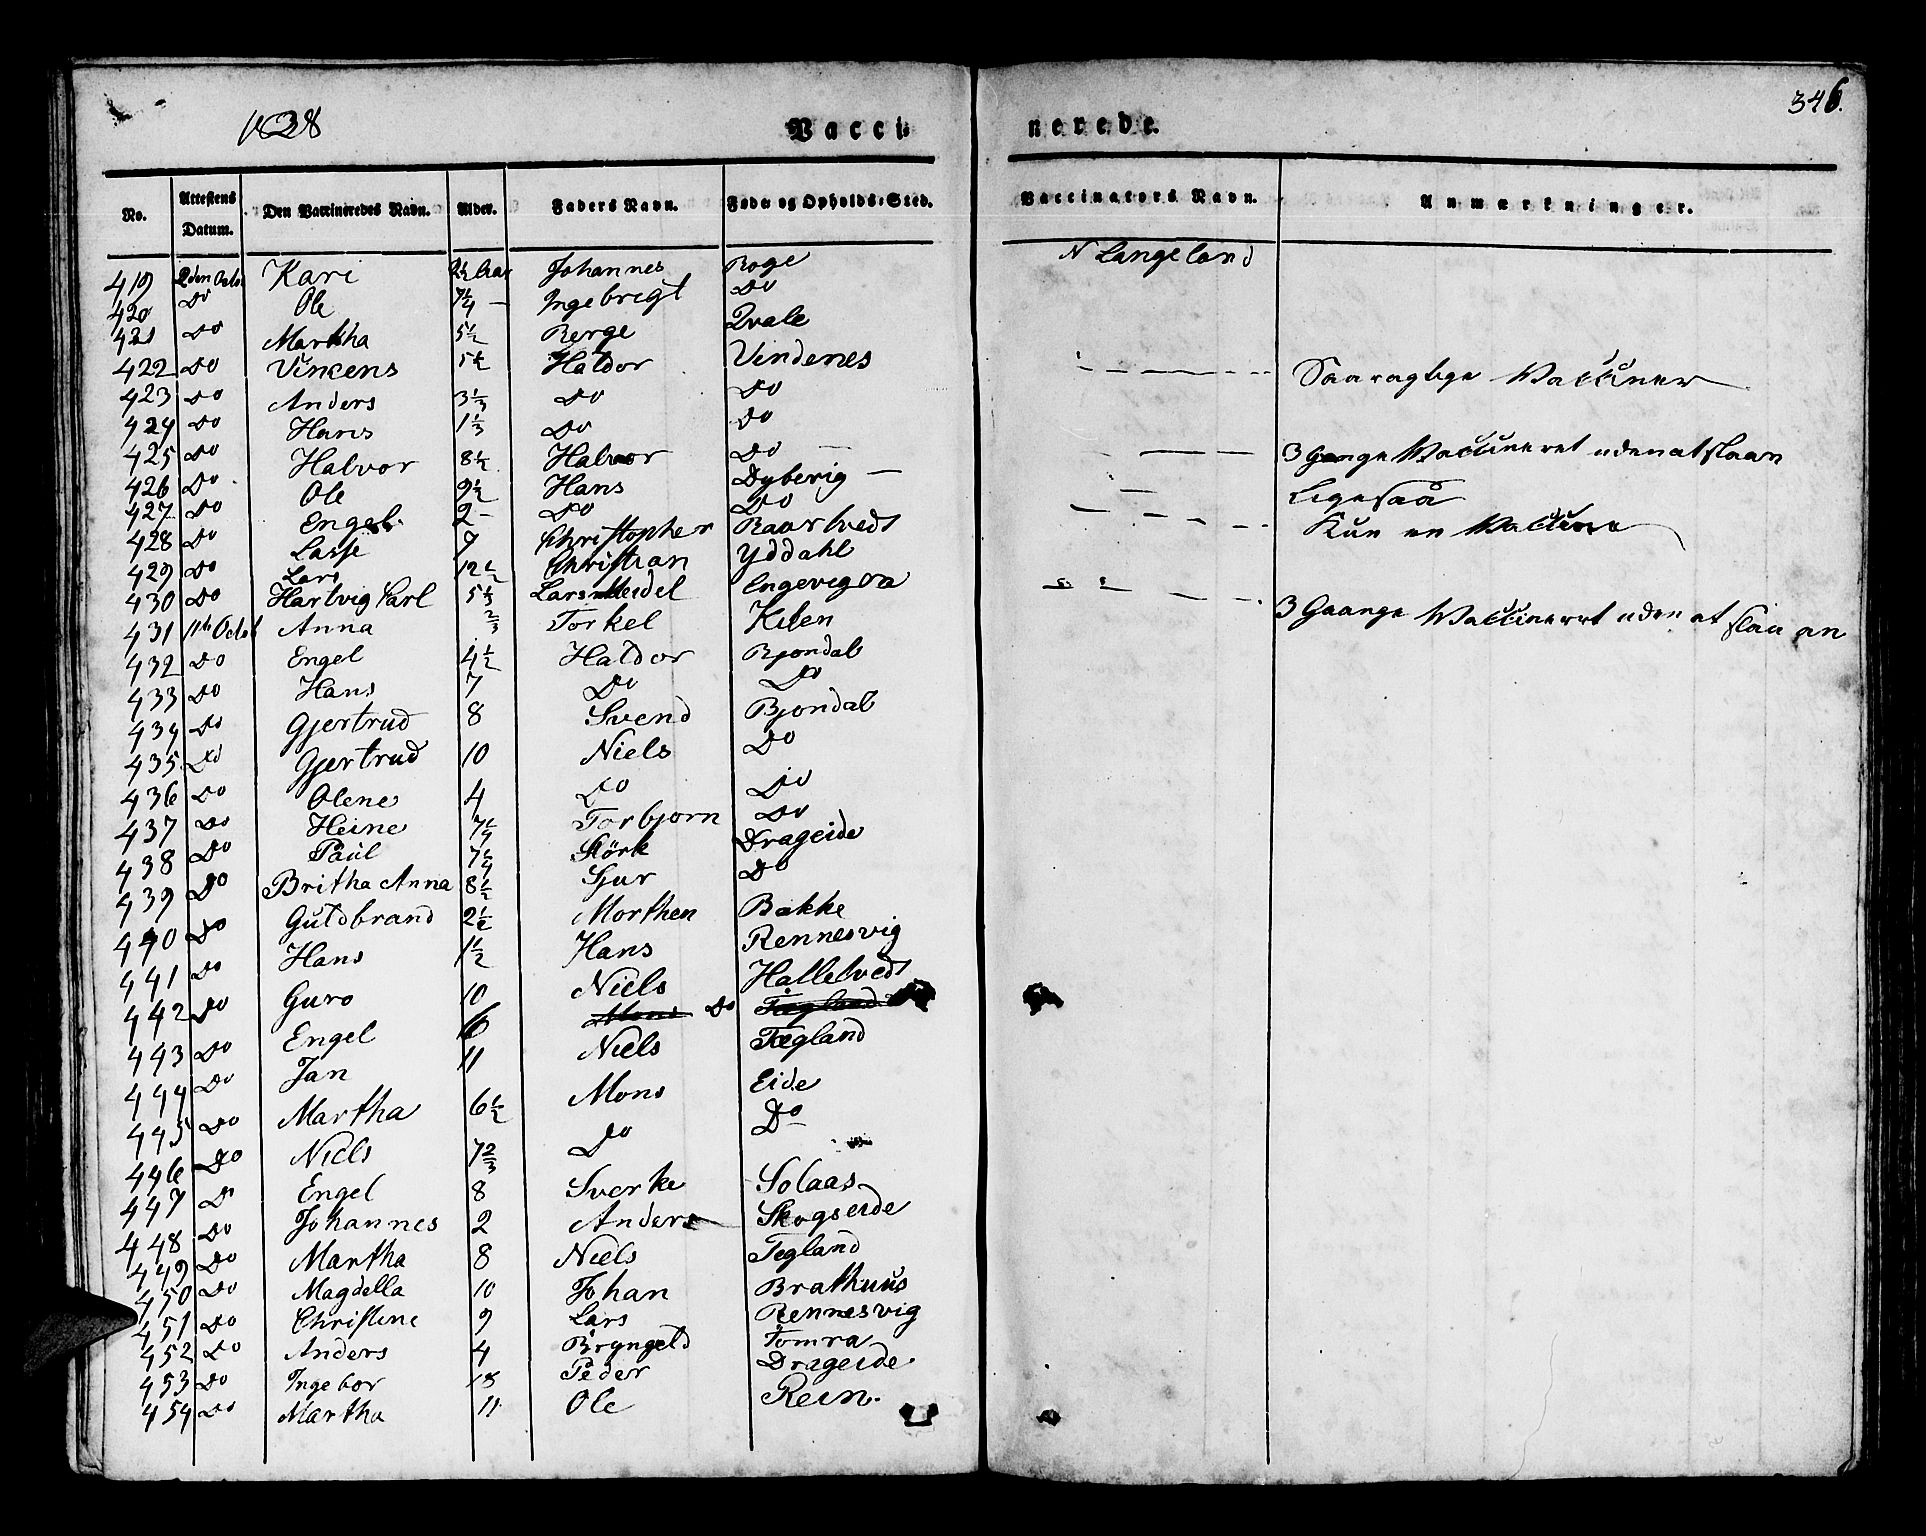 1828 Vaccinerede. 346.
No. Attestens Datum. Den Vaccineredes Navn. Alder. Faders Navn. Føde og Opholds-Sted. Vaccinators Navn. Anmærkninger.
419 2den Octb. Kari 2½ Johannes Roge N Langeland
420 Do Ole 7¼ — Ingebrigt Do
421 Do Martha 5½ Berge Qvale
422 Do Vincens 5½ Haldor Vindenes Saaragtige Vacciner
423 Do Anders 3⅓ Do Do
424 Do Hans 1⅓ Do Do
425 Do Halvor 8½ Halvor Do — 3 Gange Vaccineret uden at slaan
426 Do Ole 9½ Hans Dyberig — Ligesaa
427 Do Engel 2 — Do Do Kun en Vaccine
428 Do Lasse 7 Christopher Raartvedt
429 Do Lars 12½ Christian Yddahl
430 Do Hartvig Carl 5⅓ Lars Meidel Engevigen
431 11te Octob Anna ⅔ Torkel Kilen 3 Gaange Vaccineret uden at slaa an
432 Do Engel 4½ Haldor Bjondal
433 Do Hans 7 Do Do
434 Do Gjertrud 8 Svend Bjondal
435 Do Gjertrud 10 Niels Do
436 Do Olene 4 Do Do
437 Do Heine 7¼ Torbjorn Do
438 Do Paul 7¼ Störk Drageide
439 Do Britha Anna 8½ Sjur Do
440 Do Guldbrand 2½ Morthen Bakke
441 Do Hans 1½ Hans Rennesvig
442 Do Guro 10 Niels Halletvedt
443 Do Engel 6 Mons Do Tegland
444 Do Jan 11 Niels Tegland
445 Do Martha 6½ Mons Eide
446 Do Niels 7⅔ Do Do
447 Do Engel 8 Sverke Solaas
448 Do Johannes 2 Anders Skogseide
449 Do Martha 8 Niels Tegland
450 Do Magdella 10 Johan Brathuus
451 Do Christine 9 Lars Rennesvig
452 Do Anders 4 Bryngeld Tomra
453 Do Ingebor 13 Peder Drageide
454 Do Martha 11 Ole Rein.